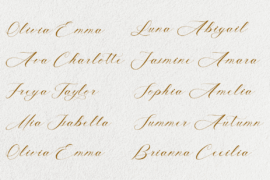 Olivia Emma
Luna Abigail
Ava Charlotte
Jasmine Amara
Freya Taylor
Sophia Amelia
Mia Isabella
Summer Autumn
Olivia Emma
Brianna Cecilia